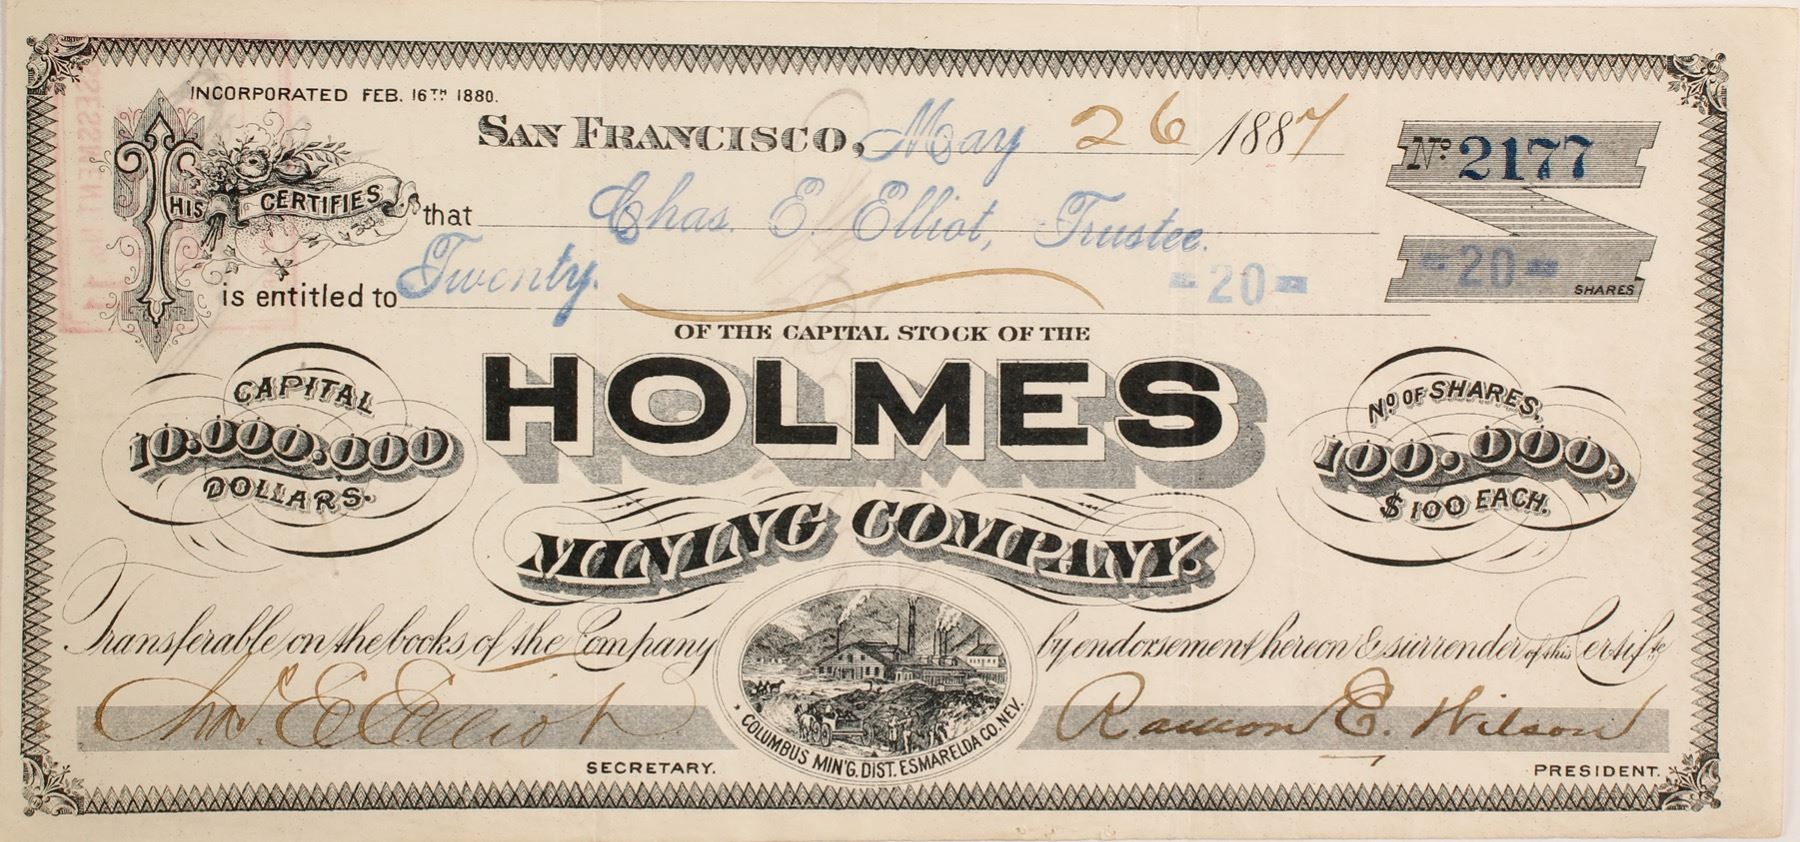 INCORPORATED FEB. 16TH 1880.
SAN FRANCISCO, May 26 1887
No. 2177
THIS CERTIFIES that Chas. E. Elliot, Trustee.
is entitled to Twenty. =20= =20= SHARES
OF THE CAPITAL STOCK OF THE
HOLMES
MINING COMPANY.
CAPITAL
10.000.000
DOLLARS.
No. OF SHARES,
100.000,
$100 EACH.
Transferable on the books of the Company by endorsement hereon & surrender of this Certifte
Chas. E Elliot
Ramon E. Wilson
SECRETARY.
PRESIDENT.
COLUMBUS MIN'G. DIST. ESMARELDA CO. NEV.
ASSESSMENT No. 11